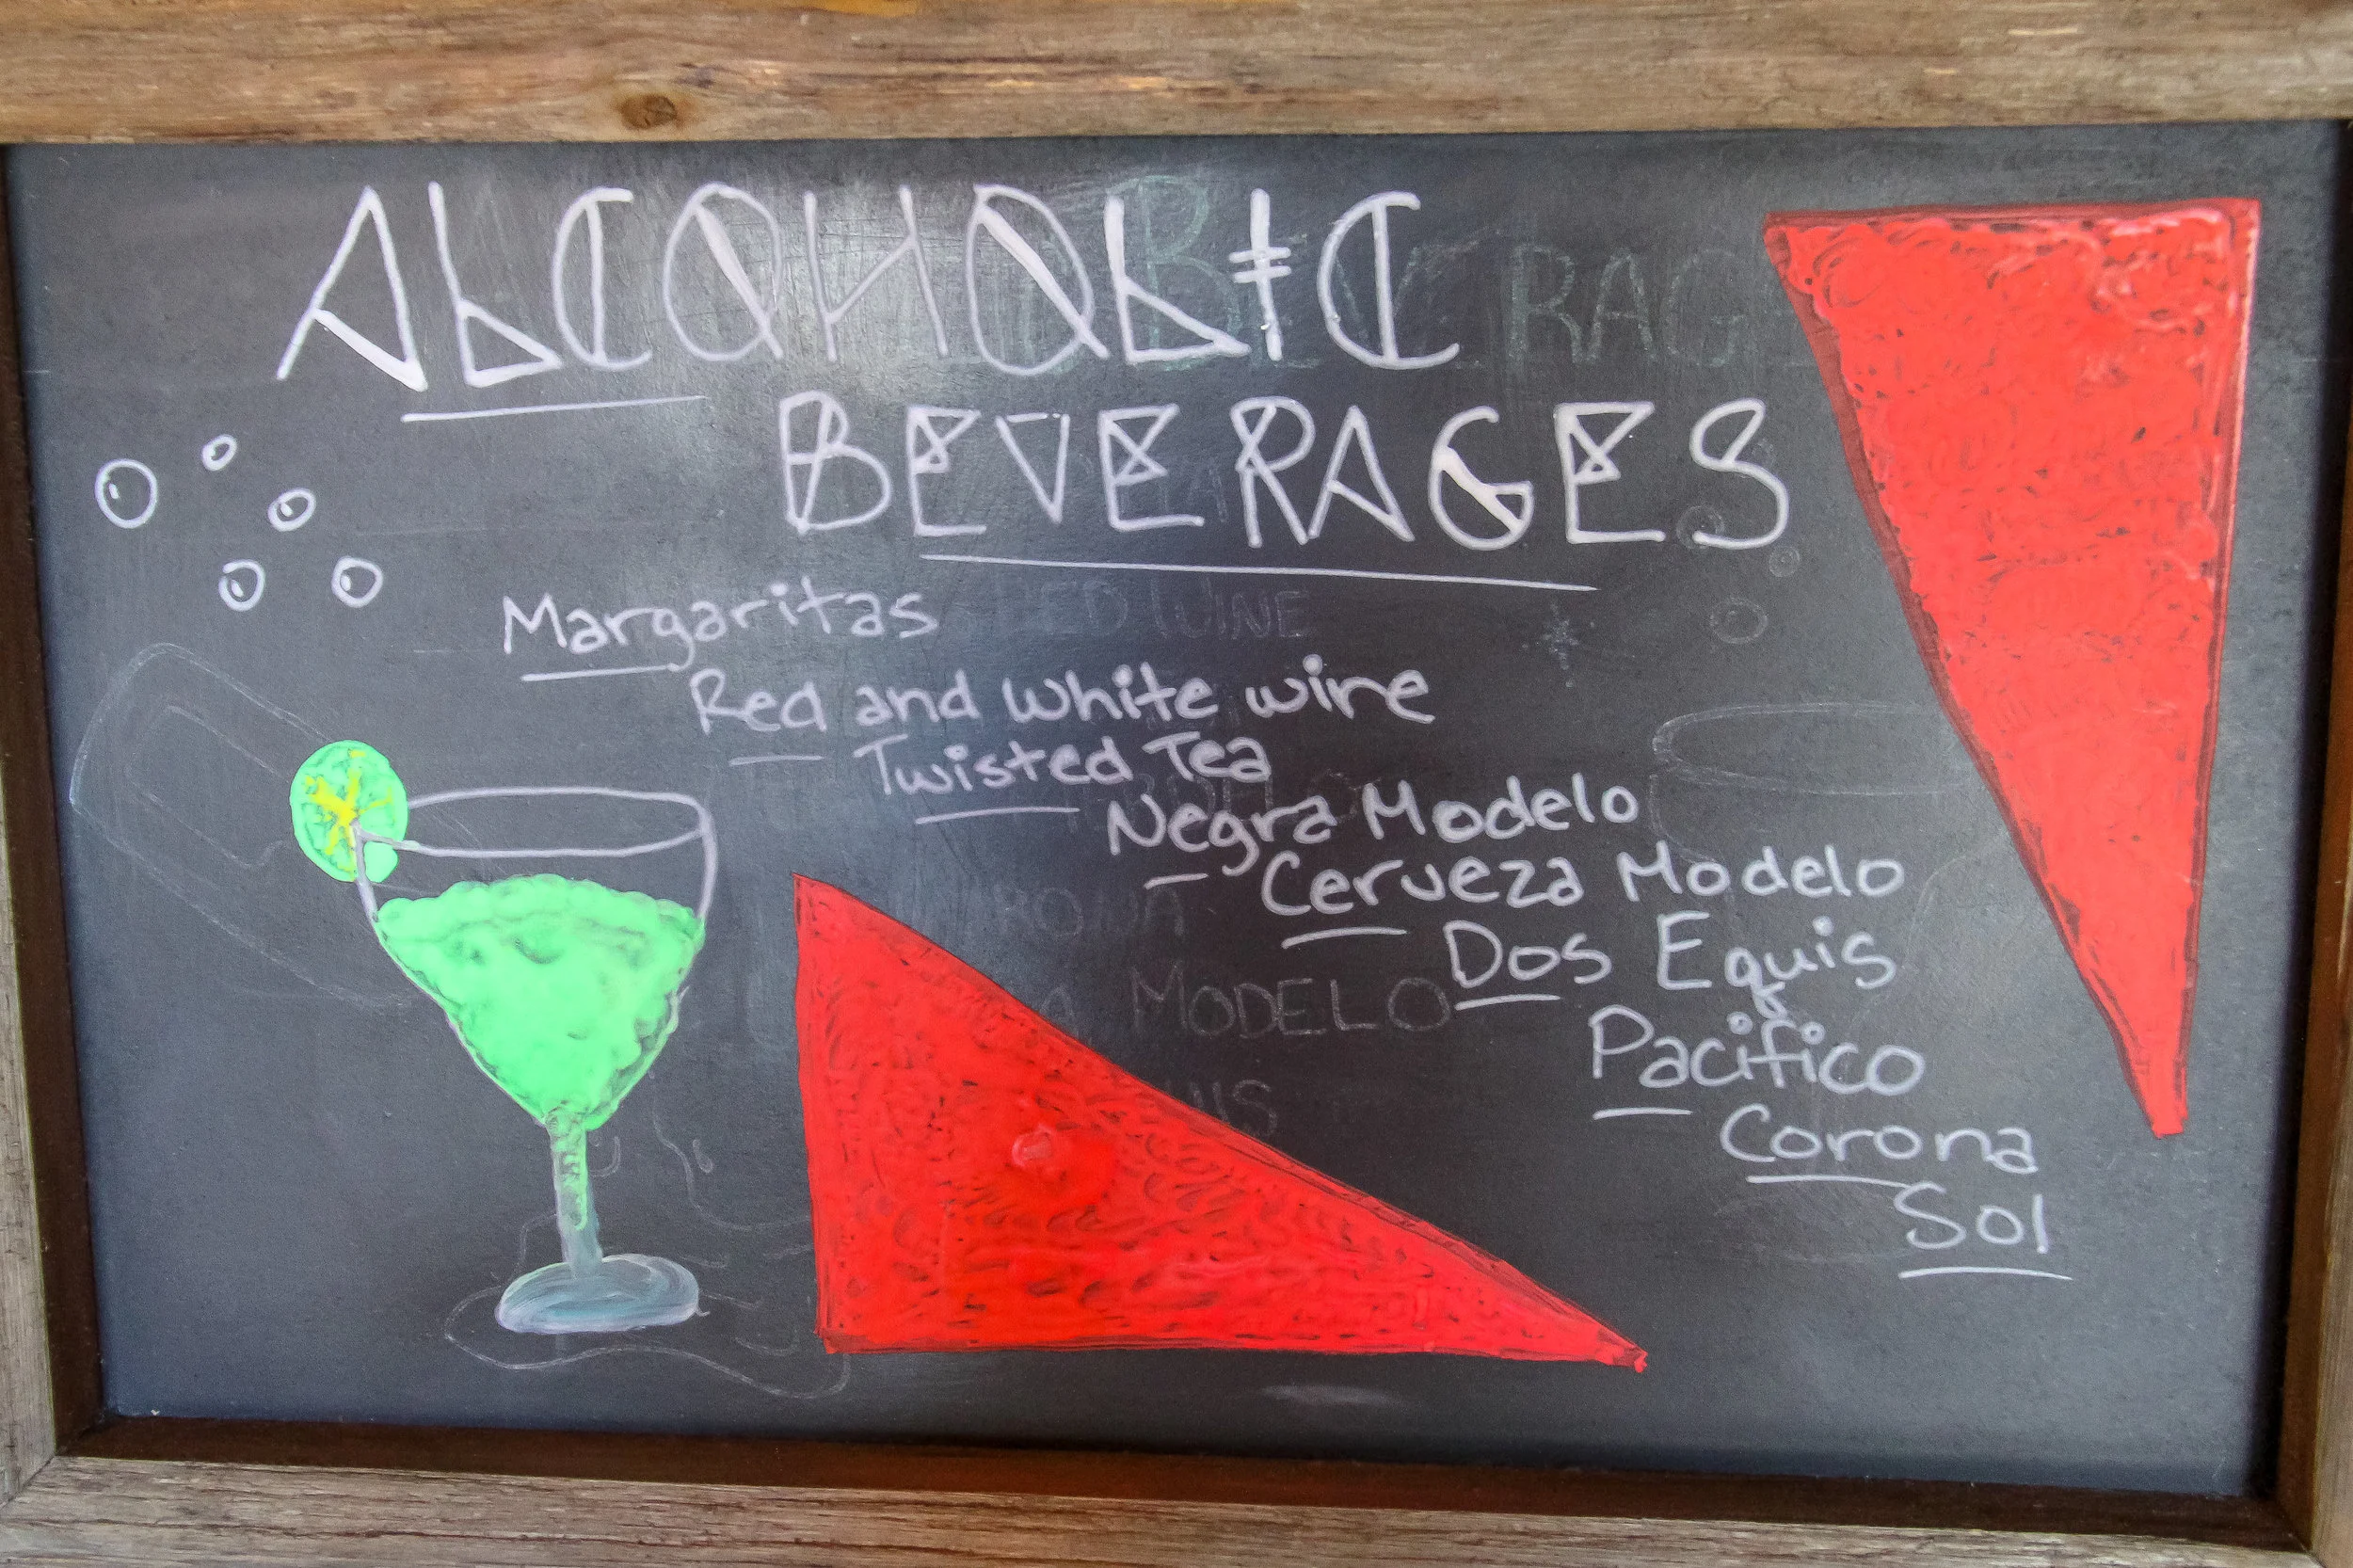 ALCOHOLIC
BEVERAGES
Margaritas
Red and white wine
Twisted Tea
Negra Modelo
Cerveza Modelo
Dos Equis
Pacifico
Corona
Sol